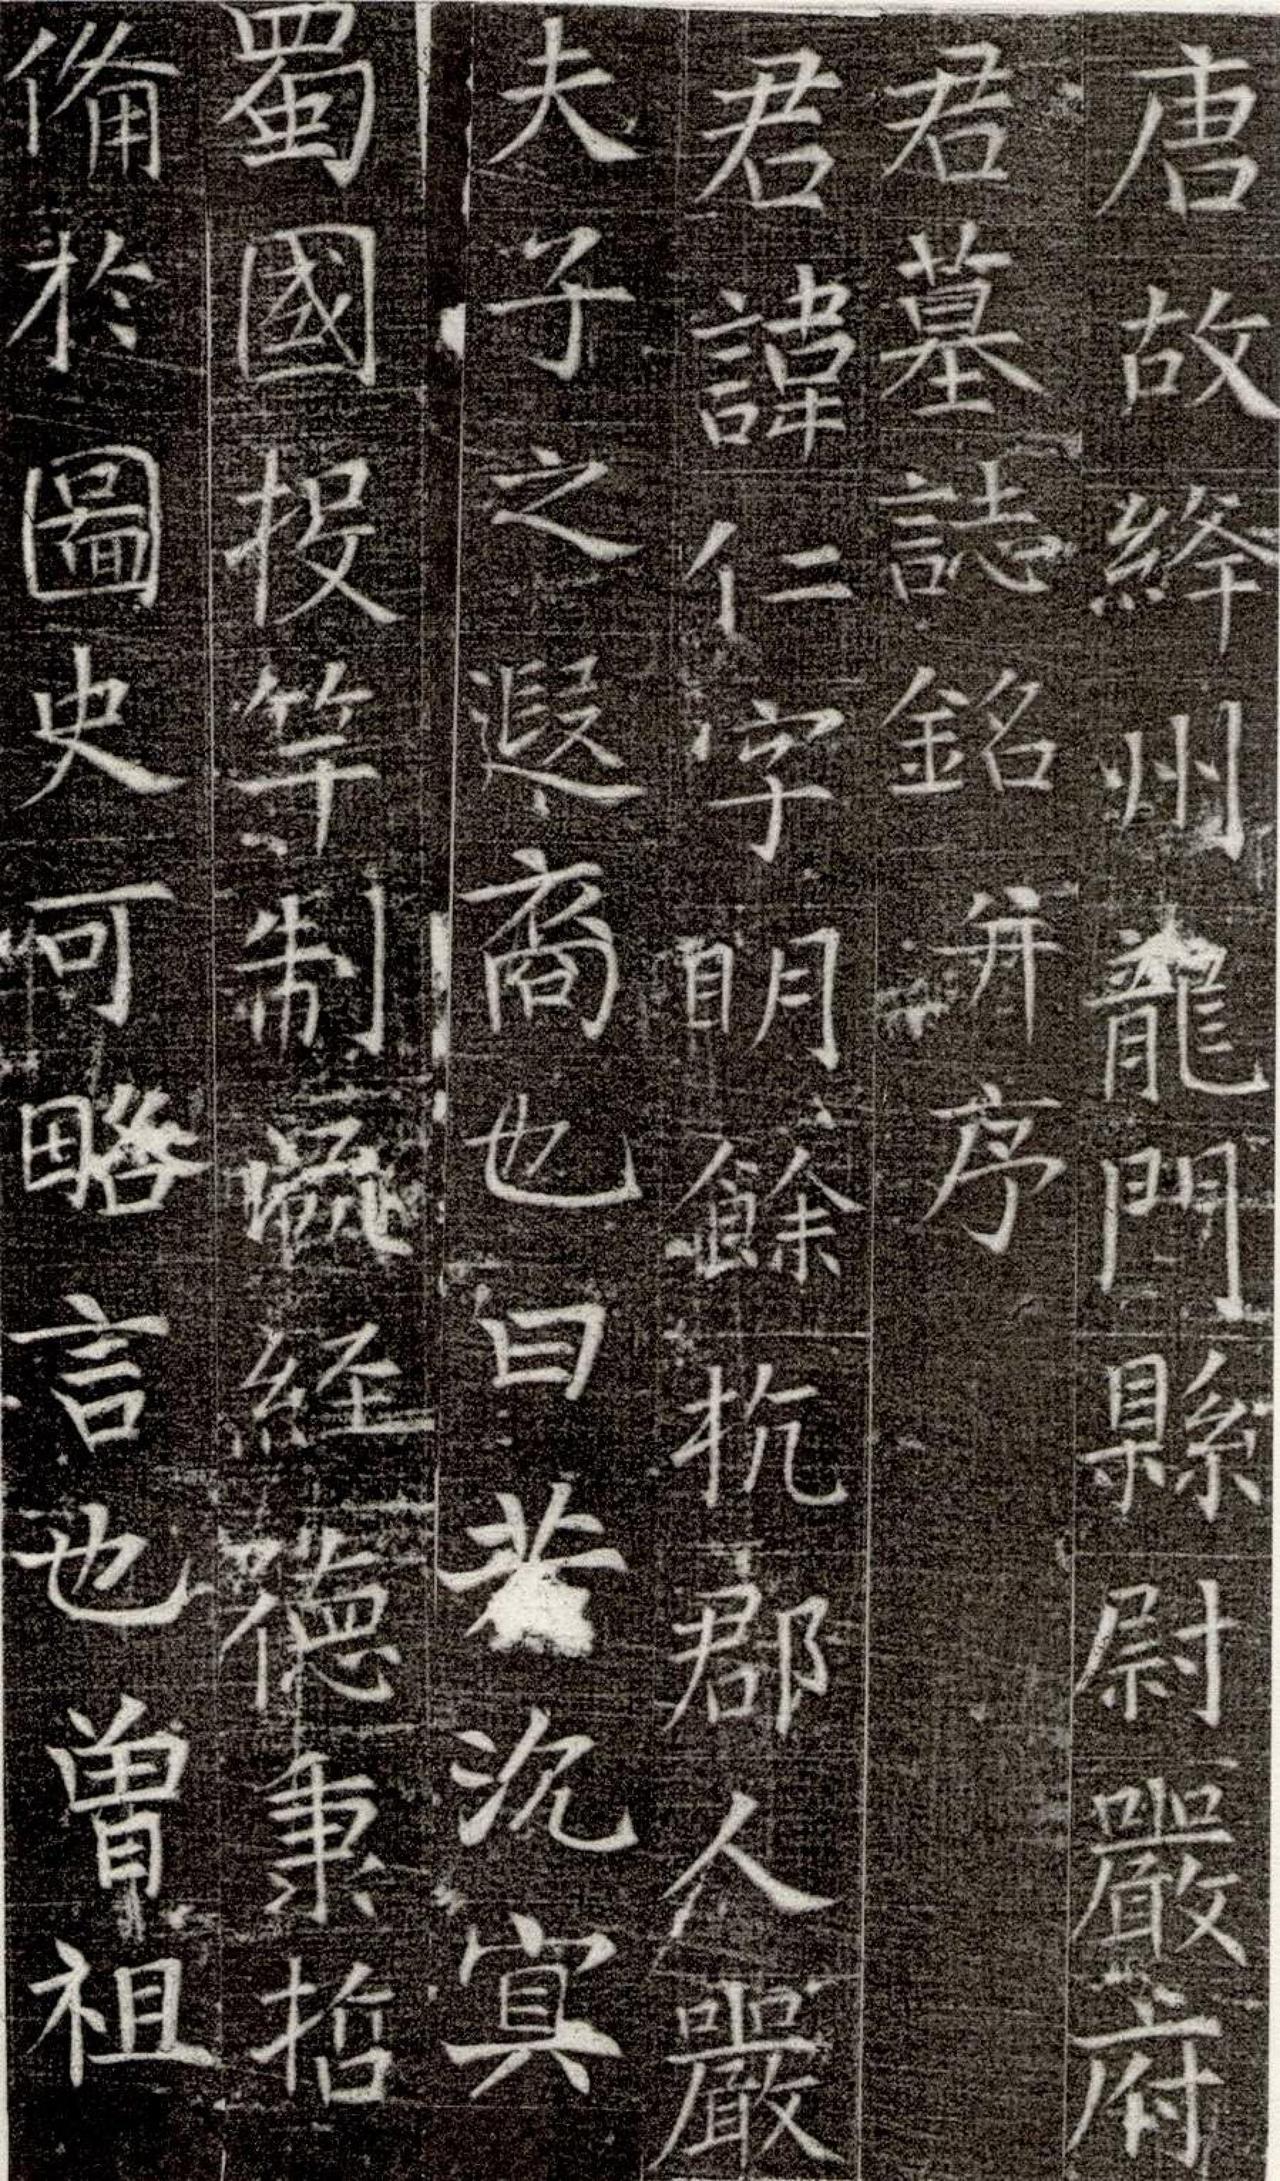 唐故絳州龍門縣尉嚴府
君墓誌銘并序
君諱仁字明餘杭郡人嚴
夫子之遐裔也曰若沉寘
蜀國投竿制嚴經德秉哲
備於圖史可略言也曾祖